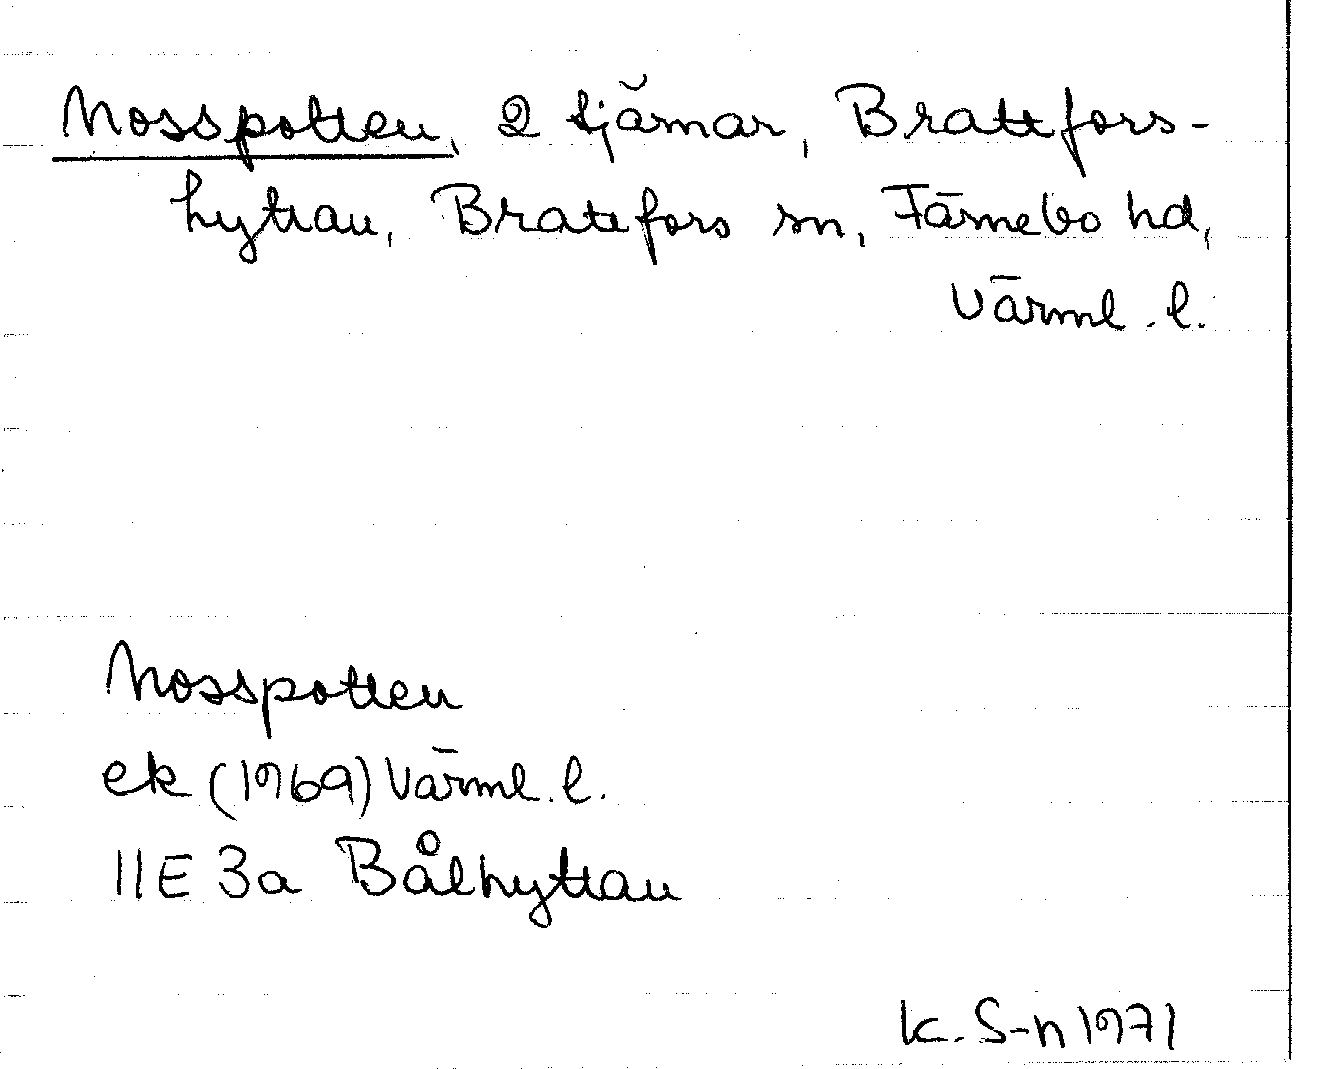 Mosspotten, 2 tjärnar, Brattfors-
hyttan, Brattfors sn, Färnebo hd,
Värml. l.
Mosspotten
ek (1969) Värml. l.
11E 3a Bålhyttan
K. S-n 1971